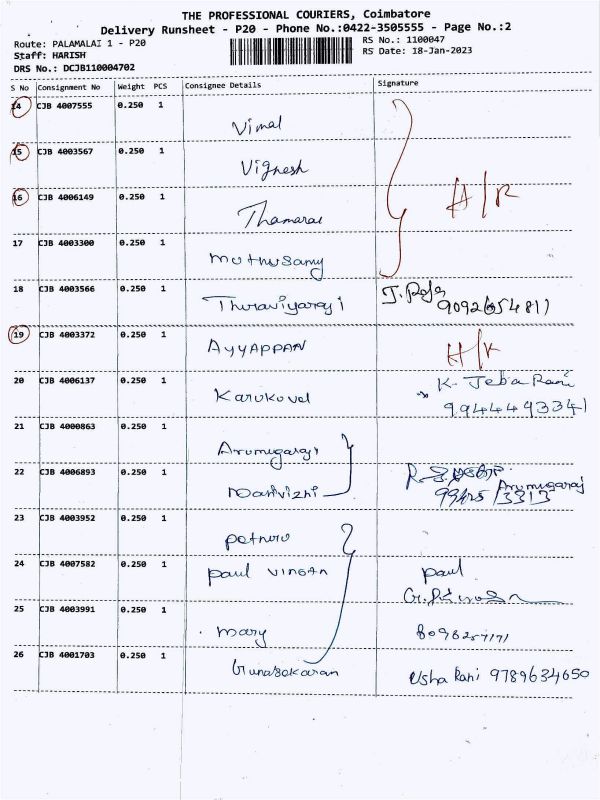 THE PROFESSIONAL COURIERS, Coimbatore
Delivery Runsheet - P20 - Phone No.:0422-3505555 - Page No.:2
Route: PALAMALAI 1 - P20 RS No.: 1100047
Staff: HARISH RS Date: 18-Jan-2023
DRS No.: DCJB110004702
S No Consignment No Weight PCS Consignee Details Signature
14 CJB 4007555 0.250 1 Vimal
15 CJB 4003567 0.250 1 Vignesh
16 CJB 4006149 0.250 1 Thamarai H/R
17 CJB 4003300 0.250 1 Muthusamy
18 CJB 4003566 0.250 1 Thuraviyaraj 9092654811
19 CJB 4003372 0.250 1 AYYAPPAN H/K
20 CJB 4006137 0.250 1 Karukuvel K. Jeba Rani
99444493341
21 CJB 4000863 0.250 1 Arumugaraj
22 CJB 4006893 0.250 1 Manivizhi Arumugaraj
23 CJB 4003952 0.250 1
24 CJB 4007582 0.250 1 Paul VINGAN Paul
25 CJB 4003991 0.250 1 Mary
26 CJB 4001703 0.250 1 Gunasokaran Usha Rani 9789634650